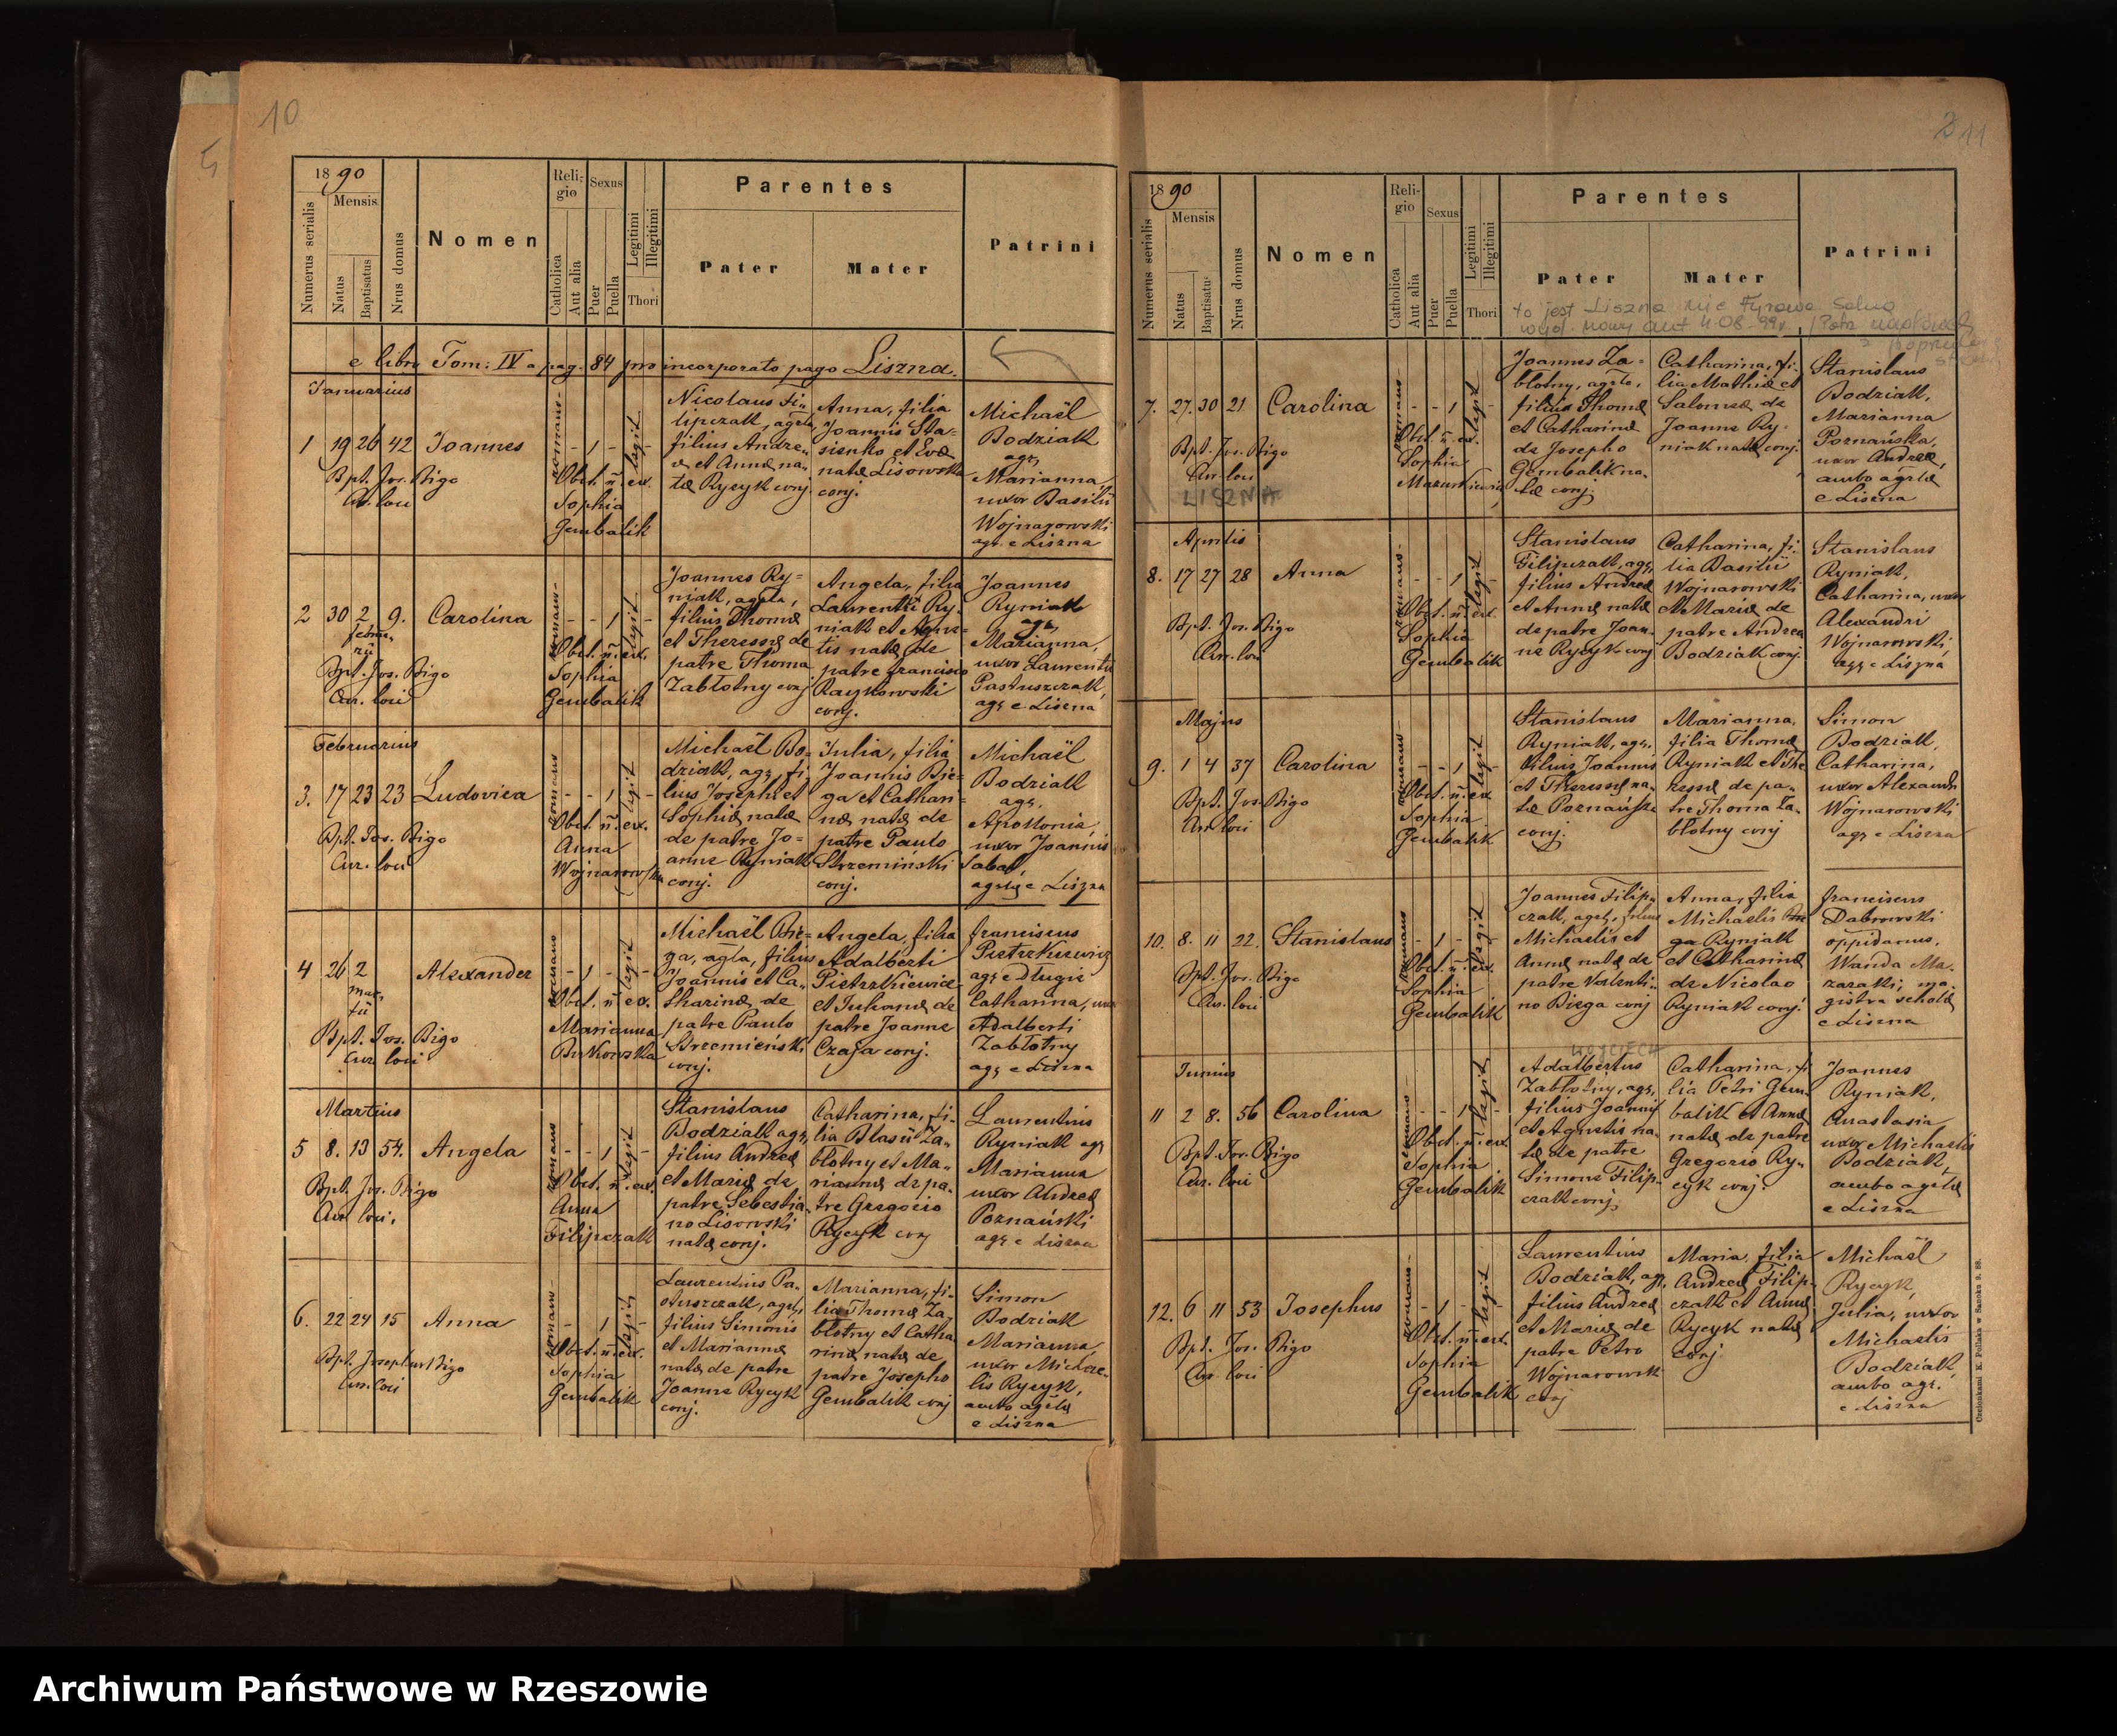 10
5
1890
Numerus serialis
Mensis
Natus
Baptisatus
Nrus domus
Nomen
Religio
Catholica
Aut alia
Sexus
Puer
Puella
Legitimi
Illegitimi
Thori
Parentes
Pater
Mater
Patrini
e libro Tom: IV a pag. 84 pro incorporato pago Liszna.
Januarius
1 19 26 42 Joannes
Bpt. Jos. Bigo
Cur. loci
romano-
- 1 - legit -
Obst. ñ. ex.
Sophia
Gembalik
Nicolaus Fi-
lipczak, agrla,
filius Andre-
æ et Annæ na-
tæ Rycyk conj.
Anna, filia
Joannis Sta-
sienko et Evæ
natæ Lisowska
conj.
Michaël
Bodziak
agr,
Marianna
uxor Basilii
Wojnarowski
agr. e Liszna
2 30 2 9. Carolina
februa-
rii
Bpt. Jos. Bigo
Cur. loci
romano-
- - 1 legit -
Obst. ñ. ex.
Sophia
Gembalik
Joannes Ry-
niak, agrla,
filius Thomæ
et Theressæ de
patre Thoma
Zabłotny conj
Angela, filia
Laurentii Ry-
niak et Agne-
tis natæ de
patre francisco
Raykowski
conj.
Joannes
Ryniak
agr,
Marianna,
uxor Laurentii
Pastuszczak,
agr e Liszna
Februarius
3. 17 23 23 Ludovica
Bpt. Jos. Bigo
Cur. loci
romano
- - 1 legit -
Obst. ñ. ex.
Anna
Wojnarowska
Michaël Bo-
dziak, agr, fi-
lius Josephi et
Sophiæ natæ
de patre Jo-
anne Ryniak
conj.
Julia, filia
Joannis Bie-
ga et Cathari-
næ natæ de
patre Paulo
Strzemiński
conj.
Michaël
Bodziak
agr.
Apollonia,
uxor Joannis
Sabat,
agrlæ e Liszna
4 26 2 Alexander
mar-
tii
Bpt. Jos. Bigo
Cur. loci
romano
- 1 - legit -
Obst. ñ ex.
Marianna
Butkowska
Michaël Bie-
ga, agla, filius
Joannis et Ca-
tharinæ de
patre Paulo
Strzemieński
conj.
Angela, filia
Adalberti
Pietrzkiewicz
et Julianæ de
patre Joanne
Czaja conj.
franciscus
Pietrzkiewicz
agr e Długie
Catharina, uxor
Adalberti
Zabłotny
agr e Liszna
Martius
5 8. 13 54. Angela
Bpt. Jos. Bigo
Cur loci.
romano
- - 1 legit -
Obst. ñ. ex.
Anna
Filipczak
Stanislaus
Bodziak agr,
filius Andreæ
et Mariæ de
patre Sebestia-
no Lisowski
natæ conj.
Catharina, fi-
lia Blasii Za-
błotny et Ma-
riannæ de pa-
tre Gregorio
Rycyk conj
Laurentius
Ryniak agr
Marianna
uxor Andreæ
Poznański
agr e Liszna
6. 22 24 15 Anna
Bpt. Josephus Bigo
Cur. loci
romano-
- 1 legit -
Obst. ñ. ex.
Sophia
Gembalik
Laurentius Pa-
stuszczak, agrl,
filius Simonis
et Mariannæ
natæ de patre
Joanne Rycyk
conj.
Marianna, fi-
lia Thomæ Za-
błotny et Catha-
rinæ natæ de
patre Josepho
Gembalik conj
Simon
Bodziak
Marianna,
uxor Michae-
lis Rycyk,
ambo agrlæ
e Liszna
11
1890
Numerus serialis
Mensis
Natus
Baptisatus
Nrus domus
Nomen
Religio
Catholica
Aut alia
Sexus
Puer
Puella
Legitimi
Illegitimi
Thori
Parentes
Pater
Mater
Patrini
to jest Liszna nie Tyrawa Solna
wyd. nowy akt 4.08.99r.
7. 27. 30 21 Carolina
Bpt. Jos. Bigo
Cur. loci
LISZNA
romano-
- - 1 legit
Obst. ñ. ex.
Sophia
Mazurkiewicz
Joannes Za-
błotny, agrla,
filius Thomæ
et Catharinæ
de Josepho
Gembalik na-
tæ conj.
Catharina, fi-
lia Mathiæ et
Salomeæ de
Joanne Ry-
niak natæ conj.
Stanislaus
Bodziak,
Marianna
Poznańska,
uxor Andreæ,
ambo agrlæ
e Liszna
Aprilis
8. 17 27 28 Anna
Bpt. Jos. Bigo
Cur. loci
romano-
- - 1 legit -
Obst. ñ. ex.
Sophia
Gembalik
Stanislaus
Filipczak, agr,
filius Andreæ
et Annæ natæ
de patre Joan-
ne Rycyk conj
Catharina, fi-
lia Basilii
Wojnarowski
et Mariæ de
patre Andrea
Bodziak conj.
Stanislaus
Ryniak,
Catharina, uxor
Alexandri
Wojnarowski,
agr e Liszna
Majus
9. 1 4 37 Carolina
Bpt. Jos. Bigo
Cur. loci
romano
- - 1 legit
Obst. ñ. ex
Sophia
Gembalik
Stanislaus
Ryniak, agr.
filius Joannis
et Theressæ na-
tæ Poznańska
conj.
Marianna,
filia Thomæ
Ryniak et The-
ressæ de pa-
tre Thoma Za-
błotny conj
Simon
Bodziak,
Catharina,
uxor Alexandri
Wojnarowski
agr e Liszna
10. 8. 11 22. Stanislaus
Bpt. Jos. Bigo
Cur. loci
romano
- 1 - legit
Obst. ñ. ex.
Sophia
Gembalik
Joannes Filip-
czak, agrl, filius
Michaelis et
Annæ natæ de
patre Valenti-
no Biega conj
Anna, filia
Michaelis
Ryniak
et Catharinæ
de Nicolao
Ryniak conj.
franciscus
Dabrowski
oppidanus,
Wanda Ma-
zaraki, ma-
gistra scholæ
e Liszna
Junius
11 2 8. 56 Carolina
Bpt. Jos. Bigo
Cur. loci
romano
- - 1 legit
Obst. ñ. ex
Sophia
Gembalik
WOJCIECH
Adalbertus
Zabłotny, agr,
filius Joannis
et Agnetis na-
tæ de patre
Simone Filip-
czak conj,
Catharina, fi-
lia Petri Gem-
balik et Annæ
natæ de patre
Gregorio Ry-
cyk conj.
Joannes
Ryniak,
Anastasia
uxor Michaelis
Bodziak,
ambo agrlæ
e Liszna
12. 6 11 53 Josephus
Bpt. Jos. Bigo
Cur. loci
romano
- 1 - legit
Obst. ñ. ex.
Sophia
Gembalik
Laurentius
Bodziak, agr,
filius Andreæ
et Mariæ de
patre Petro
Wojnarowski
conj
Maria, filia
Andreæ Filip-
czak et Annæ
Rycyk natæ
conj
Michaël
Rycyk,
Julia, uxor
Michaelis
Bodziak,
ambo agr.
e Liszna
Czcionkami K. Pollaka w Sanoku 9. 88.
Archiwum Państwowe w Rzeszowie